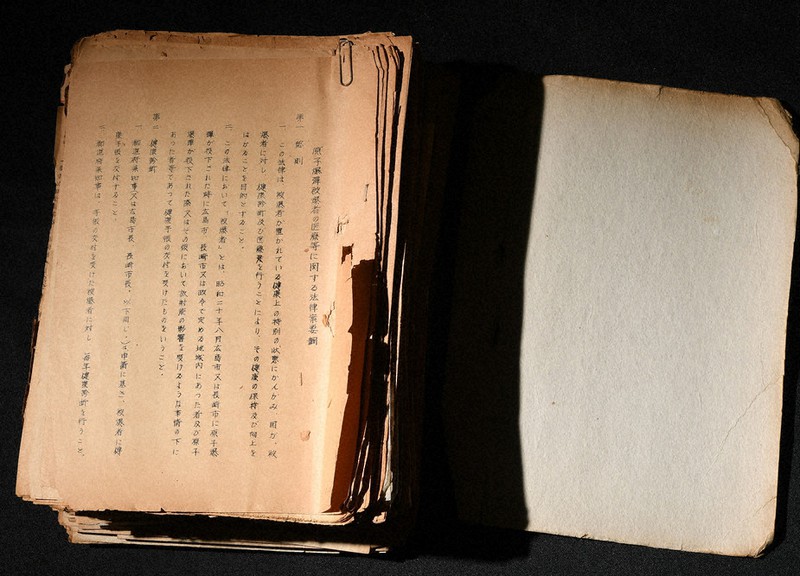 原子爆弾被爆者の医療等に関する法律案要綱
第一 総則
一 この法律は、被爆者が置かれている健康上の特別の状態にかんがみ、国が、被
爆者に対し、健康診断及び医療を行うことにより、その健康の保持及び向上を
はかることを目的とすること。
二 この法律において、「被爆者」とは、昭和二十年八月広島市又は長崎市に原子爆
弾が投下された時に広島市、長崎市又は政令で定める地域内にあった者及び原子
爆弾が投下された際又はその後において放射能の影響を受けるような事情の下に
あった者等であって健康手帳の交付を受けたものをいうこと。
第二 健康診断
一 都道府県知事(又は広島市長、長崎市長、以下同じ。)は申請に基き、被爆者に健
康手帳を交付すること。
二 都道府県知事は、手帳の交付を受けた被爆者に対し、毎年健康診断を行うこと。